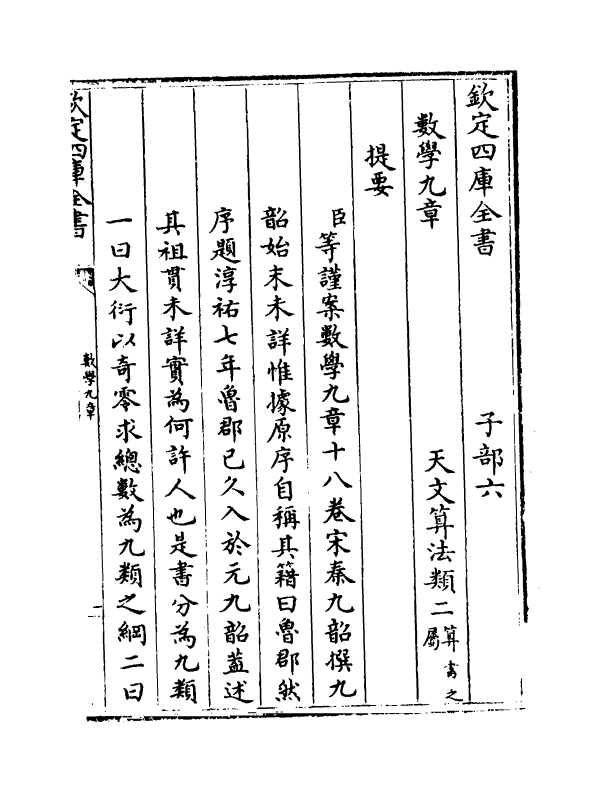 欽定四庫全書　子部六
數學九章　天文算法類二算書之屬
提要
臣等謹案數學九章十八卷宋秦九韶撰九
韶始末未詳惟據原序自稱其籍曰魯郡然
序題淳祐七年魯郡已久入於元九韶葢述
其祖貫未詳實為何許人也是書分為九類
一曰大衍以奇零求總數為九類之綱二曰
欽定四庫全書
數學九章
一